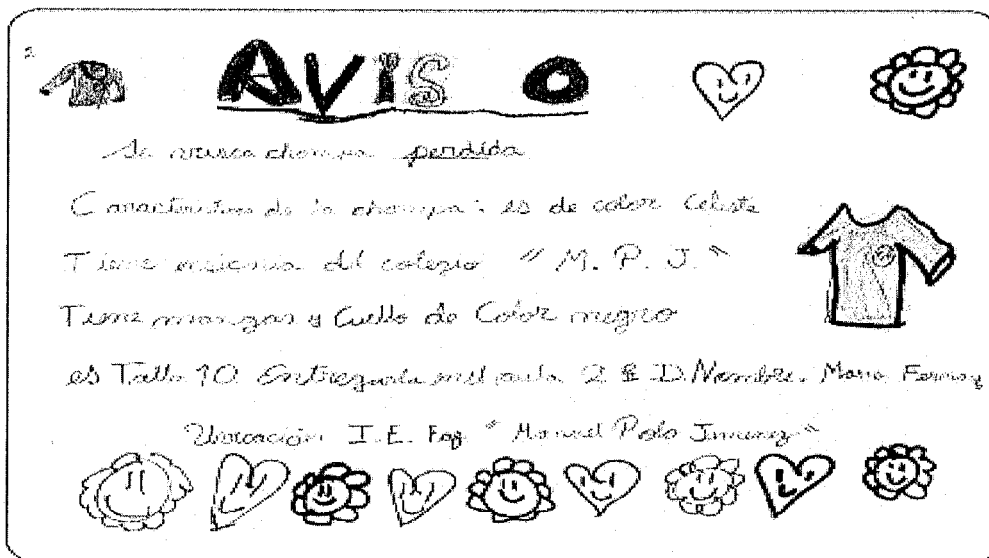 2
AVISO
Se busca chompa perdida
Características de la chompa: es de color Celeste
Tiene insignia del colegio "M. P. J."
Tiene mangas y Cuello de Color negro
es Talla 10 Entregarla en el aula 2 D Nombre. Maria
Ubicación I.E. "Manuel Polo Jimenez"